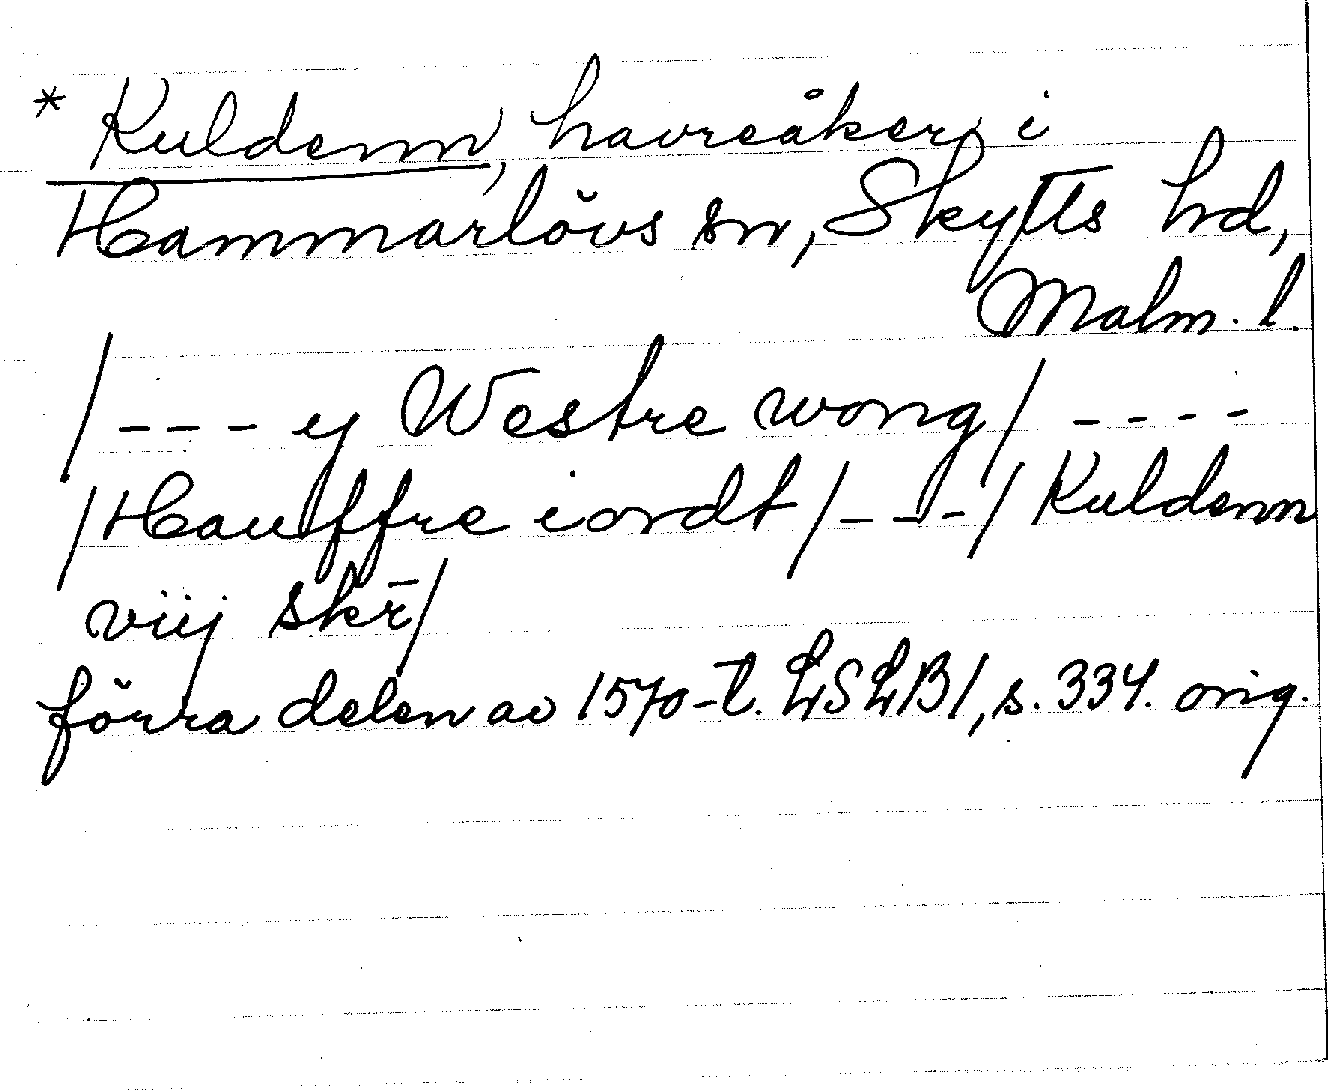 * Kuldenn, havreåker i
Hammarlövs sn, Skytts hd,
Malm. l.
/--- y Westre wong/ ----
/Hauffre iordt/---/ Kuldenn
viij skr̄/
förra delen av 1570-t. LSLB1, s. 334. orig.